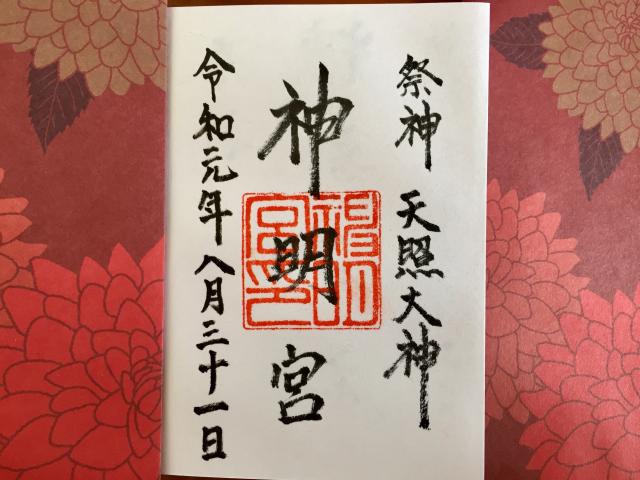 祭神 天照大神
神明宮
令和元年八月三十一日